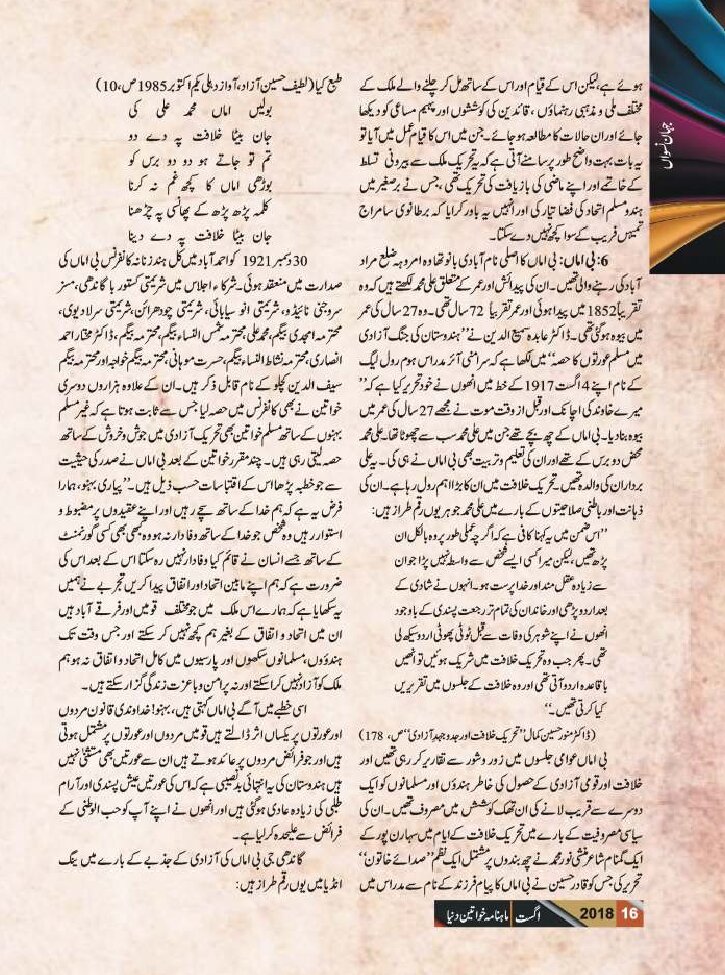 جہان نسواں
ہوئے ہے،لیکن اس کے قیام اور اس کے ساتھ مل کر چلنے والے ملک کے
مختلف ملی و مذہبی رہنماؤں ، قائدین کی کوششوں اور پیہم مساعی کو دیکھا
جائے اور ان حالات کا مطالعہ ہو جائے۔ جن میں اس کا قیام عمل میں آیا تو
یہ بات بہت واضح طور پر سامنے آتی ہے کہ یہ تحریک ملک سے بیرونی تسلط
کے خاتمے اور اپنے ماضی کی بازیافت کی تحریک تھی ، جس نے برصغیر میں
ہندو مسلم اتحاد کی فضا تیار کی اور انہیں یہ باور کرایا کہ برطانوی سامراج
تمہیں فریب کے سوا کچھ نہیں دے سکتا۔
6: بی اماں: بی اماں کا اصلی نام آبادی بانو تھا وہ امروہہ ضلع مراد
آباد کی رہنے والی تھیں۔ ان کی پیدائش اور عمر کے متعلق علی محمد لکھتے ہیں کہ وہ
تقریباً 1852 میں پیدا ہوئی اور عمر تقریباً 72 سال تھی۔ وہ 27 سال کی عمر
میں بیوہ ہو گئی تھی۔ ڈاکٹر عابدہ سمیع الدین نے ”ہندوستان کی جنگ آزادی
میں مسلم عورتوں کا حصہ“ میں لکھا ہے کہ سرامنی آئر مدراس ہوم رول لیگ
کے نام اپنے 4 اگست 1917 کے خط میں انھوں نے خود تحریر کیا ہے کہ ”
میرے خاوند کی اچانک اور قبل از وقت موت نے مجھے 27 سال کی عمر میں
بیوہ بنا دیا۔ بی اماں کے چھ بچے تھے جن میں علی محمد سب سے چھوٹا تھا۔ علی محمد
محض دو برس کے تھے اور ان کی تعلیم و تربیت بھی بی اماں نے ہی کی۔ یہ علی
برداران کی والدہ تھیں۔ تحریک خلافت میں ان کا بڑا اہم رول رہا ہے۔ ان کی
ذہانت اور باطنی صلاحیتوں کے بارے میں علی محمد جوہر یوں رقم طراز ہیں:
”اس ضمن میں یہ کہنا کافی ہے کہ اگرچہ عملی طور پر وہ بالکل ان
پڑھ تھیں، لیکن میرا کسی ایسے شخص سے واسطہ نہیں پڑا جو ان
سے زیادہ عقل مند اور خدا پرست ہو۔ انہوں نے شادی کے
بعد اردو پڑھی اور خاندان کی تمام تر رجعت پسندی کے باوجود
انھوں نے اپنے شوہر کی وفات سے قبل ٹوٹی پھوٹی اردو سیکھ لی
تھی۔ پھر جب وہ تحریک خلافت میں شریک ہوئیں تو انھیں
باقاعدہ اردو آتی تھی اور وہ خلافت کے جلسوں میں تقریریں
کیا کرتی تھیں۔“
(ڈاکٹر منور حسین کمال ”تحریک خلافت اور جدوجہد آزادی“ ص، 178)
بی اماں عوامی جلسوں میں زور و شور سے تقاریر کر رہی تھیں اور
خلافت اور قومی آزادی کے حصول کی خاطر ہندوؤں اور مسلمانوں کو ایک
دوسرے سے قریب لانے کی ان تھک کوشش میں مصروف تھیں۔ ان کی
سیاسی مصروفیت کے بارے میں تحریک خلافت کے ایام میں سہارن پور کے
ایک گمنام شاعر منشی نور محمد نے چھ بندوں پر مشتمل ایک نظم ”صدائے خاتون“
تحریر کی جس کو قادر حسین نے بی اماں کا پیام فرزند کے نام سے مدراس میں
طبع کیا (لطیف حسین آزاد، آواز دہلی یکم اکتوبر 1985 ص، 10)
بولیں اماں محمد علی کی
جان بیٹا خلافت پہ دے دو
تم تو جاتے ہو دو دو برس کو
بوڑھی اماں کا کچھ غم نہ کرنا
کلمہ پڑھ پڑھ کے پھانسی پہ چڑھنا
جان بیٹا خلافت پہ دے دینا
30 دسمبر 1921 کو احمد آباد میں کل ہند زنانہ کانفرنس بی اماں کی
صدارت میں منعقد ہوئی۔ شرکاء اجلاس میں شریمتی کستور با گاندھی، مسز
سروجنی نائیڈو، شریمتی انو سیابائی، شریمتی چودھرائن، شریمتی سرلا دیوی،
محترمہ امجدی بیگم، محمد علی، محترمہ شمس النساء بیگم، محترمہ بیگم، ڈاکٹر مختار احمد
انصاری، محترمہ نشاط النساء بیگم، حسرت موہانی، محترمہ بیگم خواجہ اور محترمہ بیگم
سیف الدین کچلو کے نام قابل ذکر ہیں۔ ان کے علاوہ ہزاروں دوسری
خواتین نے بھی کانفرنس میں حصہ لیا جس سے ثابت ہوتا ہے کہ غیر مسلم
بہنوں کے ساتھ مسلم خواتین بھی تحریک آزادی میں جوش و خروش کے ساتھ
حصہ لیتی رہی ہیں۔ چند مقرر خواتین کے بعد بی اماں نے صدر کی حیثیت
سے جو خطبہ پڑھا اس کے اقتباسات حسب ذیل ہیں۔ ”پیاری بہنو، ہمارا
فرض یہ ہے کہ ہم خدا کے ساتھ سچے رہیں اور اپنے عقیدوں پر مضبوط و
استوار رہیں وہ شخص جو خدا کے ساتھ وفادار نہ ہو وہ کبھی بھی کسی گورنمنٹ
کے ساتھ جسے انسان نے قائم کیا وفادار نہیں رہ سکتا اس کے بعد اس کی
ضرورت ہے کہ ہم اپنے مابین اتحاد اور اتفاق پیدا کریں تجربے نے ہمیں
یہ سکھایا ہے کہ ہمارے اس ملک میں جو مختلف قومیں اور فرقے آباد ہیں
ان میں اتحاد و اتفاق کے بغیر ہم کچھ نہیں کر سکتے اور جس وقت تک
ہندوؤں، مسلمانوں سکھوں اور پارسیوں میں کامل اتحاد و اتفاق نہ ہو ہم
ملک کو آزاد نہیں کرا سکتے اور نہ پر امن و باعزت زندگی گزار سکتے ہیں۔
اسی خطبے میں آگے بی اماں کہتی ہیں، بہنو! خداوندی قانون مردوں
اور عورتوں پر یکساں اثر ڈالتے ہیں قومیں مردوں اور عورتوں پر مشتمل ہوتی
ہیں اور جو فرائض مردوں پر عائد ہوتے ہیں ان سے عورتیں بھی مستثنیٰ نہیں
ہیں ہندوستان کی یہ انتہائی بدنصیبی ہے کہ اس کی عورتیں عیش پسندی اور آرام
طلبی کی زیادہ عادی ہو گئی ہیں اور انھوں نے اپنے آپ کو حب الوطنی کے
فرائض سے علیحدہ کر لیا ہے۔
گاندھی جی بی اماں کی آزادی کے جذبے کے بارے میں ینگ
انڈیا میں یوں رقم طراز ہیں:
ماہنامہ خواتین دنیا | اگست 2018 16